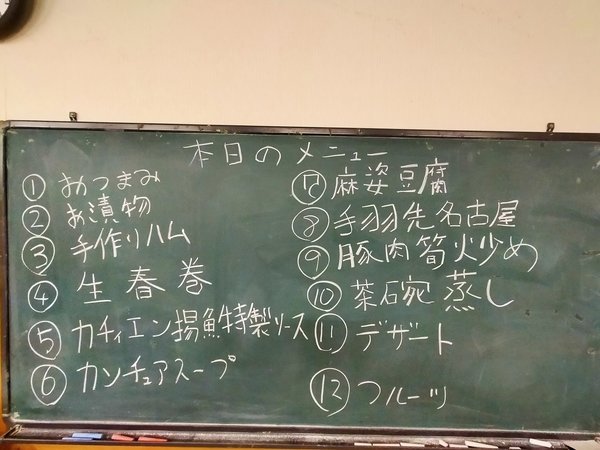 本日のメニュー
① おつまみ
② お漬物
③ 手作りハム
④ 生春巻
⑤ カチィエン揚魚特製ソース
⑥ カンチュアスープ
⑦ 麻姿豆腐
⑧ 手羽先名古屋
⑨ 豚肉筍火少め
⑩ 茶碗蒸し
⑪ デザート
⑫ フルーツ